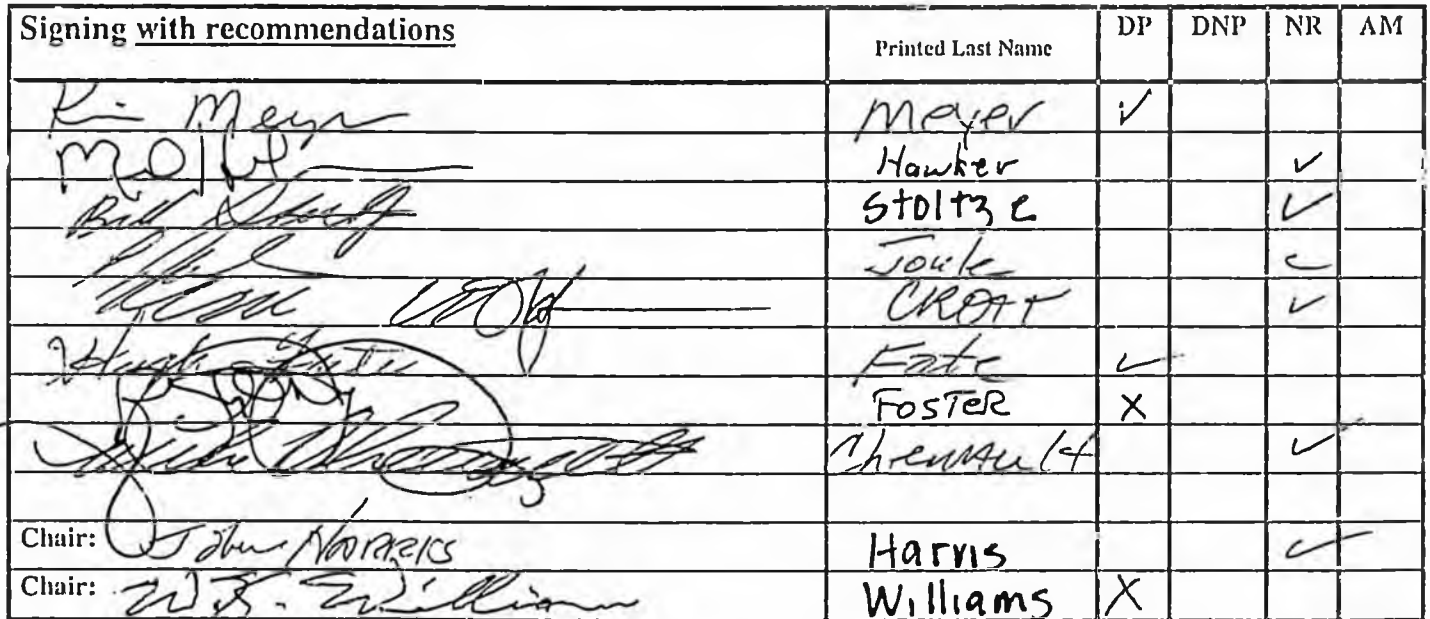 Signing with recommendations Printed Last Name DP DNP NR AM
Meyer Meyer ✓
Hawker ✓
Bill Stoltze ✓
✓
CROFT ✓
Hugh Fate Fate ✓
FOSTER X
Mike Chenault ✓
Chair: John Harris Harris ✓
Chair: W.K. Williams Williams X